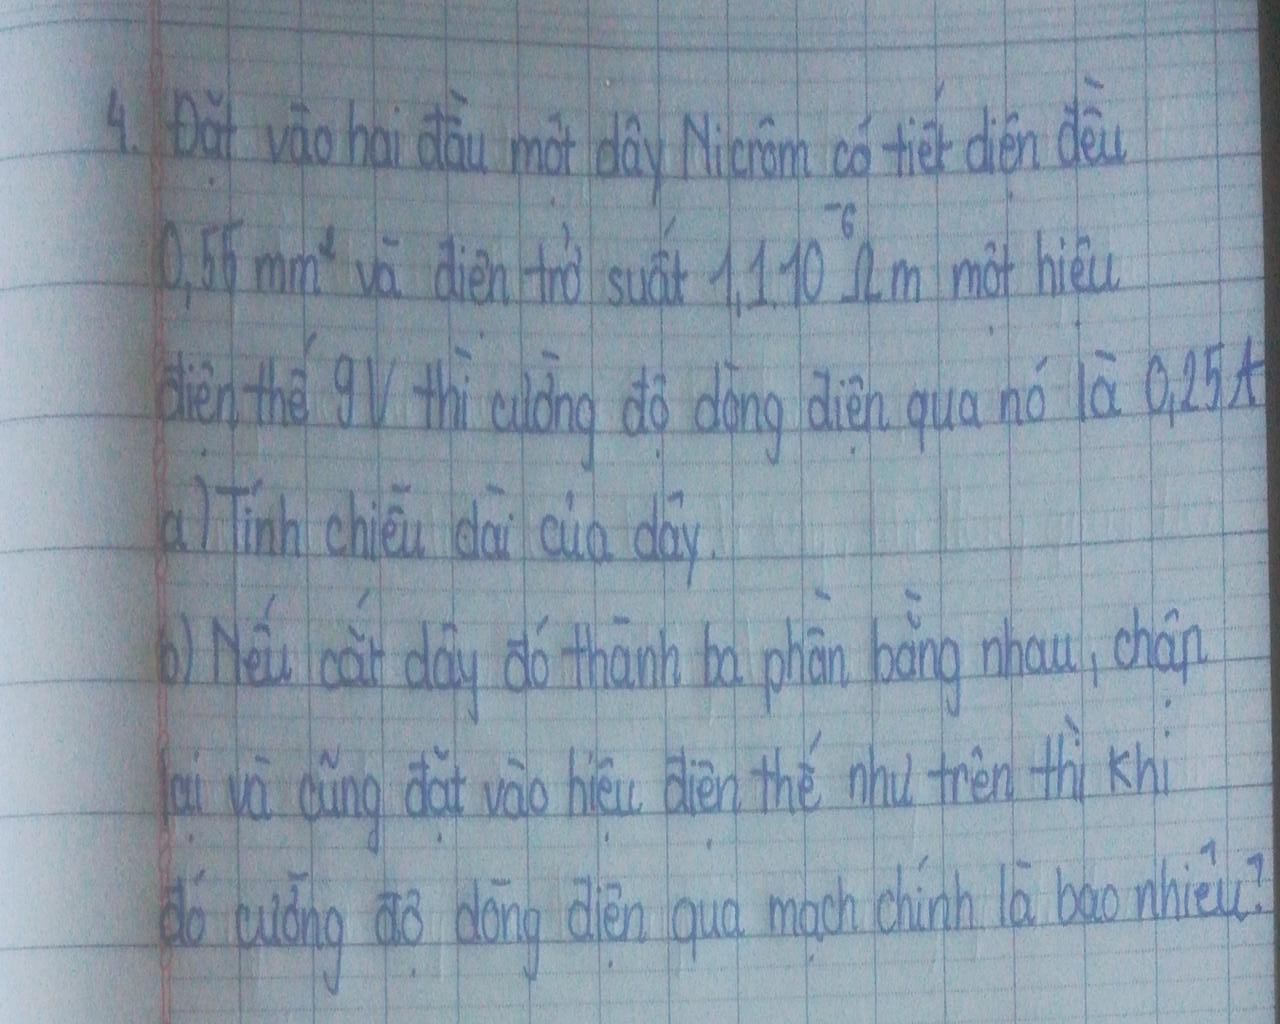 4. Đặt vào hai đầu một dây Nicrôm có tiết diện đều
0,55 mm² và điện trở suất 1,1.10⁻⁶ Ωm một hiệu
điện thế 9V thì cường độ dòng điện qua nó là 0,25A
a) Tính chiều dài của dây.
b) Nếu cắt dây đó thành ba phần bằng nhau, chập
lại và cũng đặt vào hiệu điện thế như trên thì khi
đó cường độ dòng điện qua mạch chính là bao nhiêu?